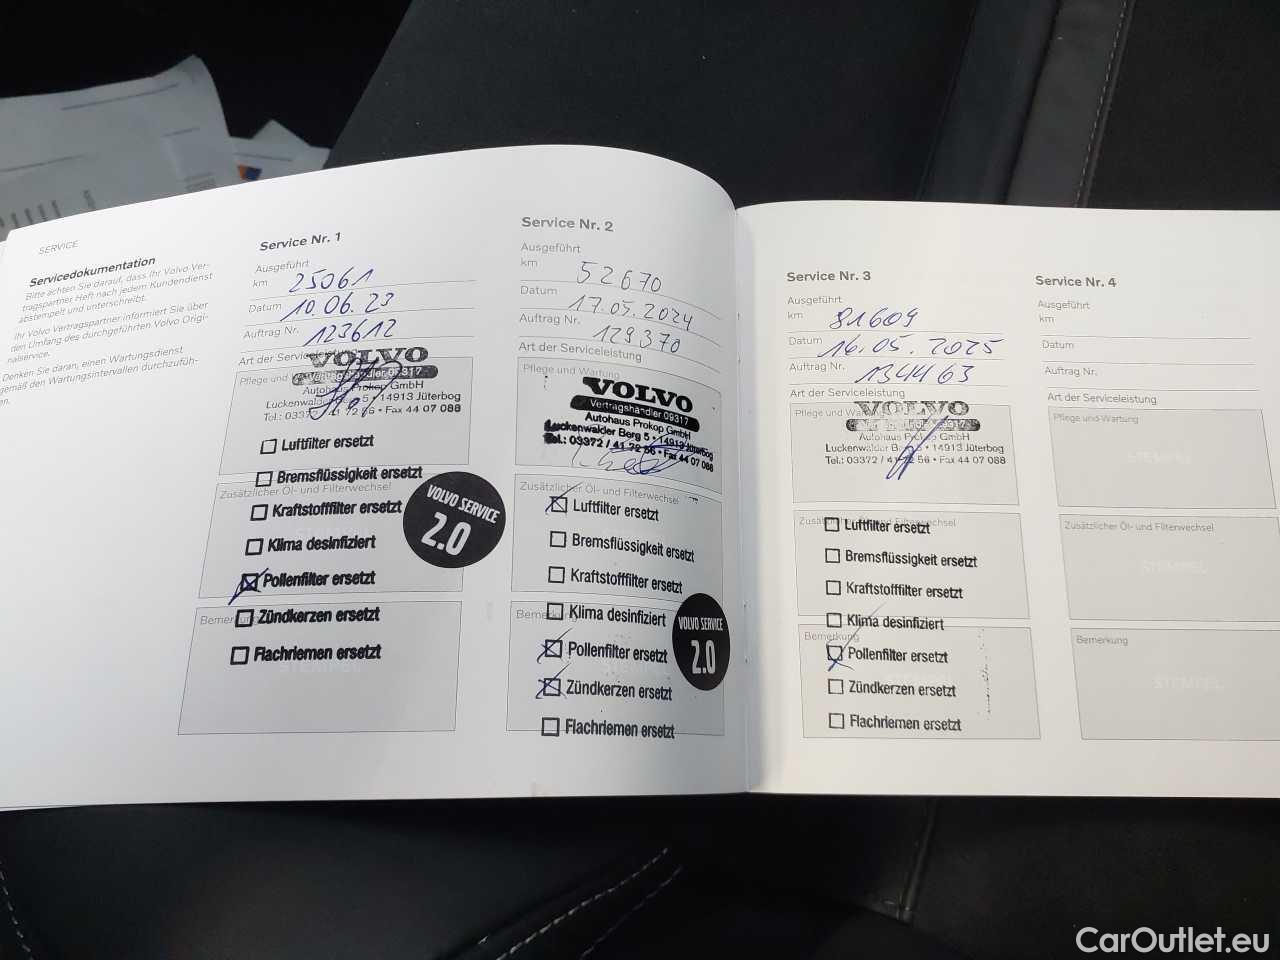 SERVICE
Servicedokumentation
Bitte achten Sie darauf, dass Ihr Volvo Ver-
tragspartner Heft nach jedem Kundendienst
abstempelt und unterschreibt.
Ihr Volvo Vertragspartner informiert Sie über
den Umfang des durchgeführten Volvo Origi-
nalservice.
Denken Sie daran, einen Wartungsdienst
gemäß den Wartungsintervallen durchzufüh-
en.
Service Nr. 1
Ausgeführt
km 25061
Datum 10.06.23
Auftrag Nr. 123612
Art der Serviceleistung
Pflege und Wartung
VOLVO
Vertragshändler 09317
Autohaus Prokop GmbH
Luckenwalder Berg 5 • 14913 Jüterbog
Tel.: 03372 / 41 72 56 • Fax 44 07 088
Luftfilter ersetzt
Bremsflüssigkeit ersetzt
Zusätzlicher Öl- und Filterwechsel
Kraftstofffilter ersetzt
Klima desinfiziert
Pollenfilter ersetzt
Bemerkung
Zündkerzen ersetzt
Flachriemen ersetzt
STEMPEL
VOLVO SERVICE
2.0
Service Nr. 2
Ausgeführt
km 52670
Datum 17.05.2024
Auftrag Nr. 129370
Art der Serviceleistung
Pflege und Wartung
VOLVO
Vertragshändler 09317
Autohaus Prokop GmbH
Luckenwalder Berg 5 • 14913 Jüterbog
Tel.: 03372 / 41 72 56 • Fax 44 07 088
Zusätzlicher Öl- und Filterwechsel
Luftfilter ersetzt
Bremsflüssigkeit ersetzt
Kraftstofffilter ersetzt
Klima desinfiziert
Bemerkung
Pollenfilter ersetzt
Zündkerzen ersetzt
Flachriemen ersetzt
VOLVO SERVICE
2.0
Service Nr. 3
Ausgeführt
km 81609
Datum 16.05.2025
Auftrag Nr. 134463
Art der Serviceleistung
Pflege und Wartung
VOLVO
Autohaus Prokop GmbH
Luckenwalder Berg 5 • 14913 Jüterbog
Tel.: 03372 / 41 72 56 • Fax 44 07 088
Zusätzlicher Öl- und Filterwechsel
Luftfilter ersetzt
Bremsflüssigkeit ersetzt
Kraftstofffilter ersetzt
Klima desinfiziert
Bemerkung
Pollenfilter ersetzt
Zündkerzen ersetzt
Flachriemen ersetzt
Service Nr. 4
Ausgeführt
km
Datum
Auftrag Nr.
Art der Serviceleistung
Pflege und Wartung
STEMPEL
Zusätzlicher Öl- und Filterwechsel
STEMPEL
Bemerkung
STEMPEL
CarOutlet.eu